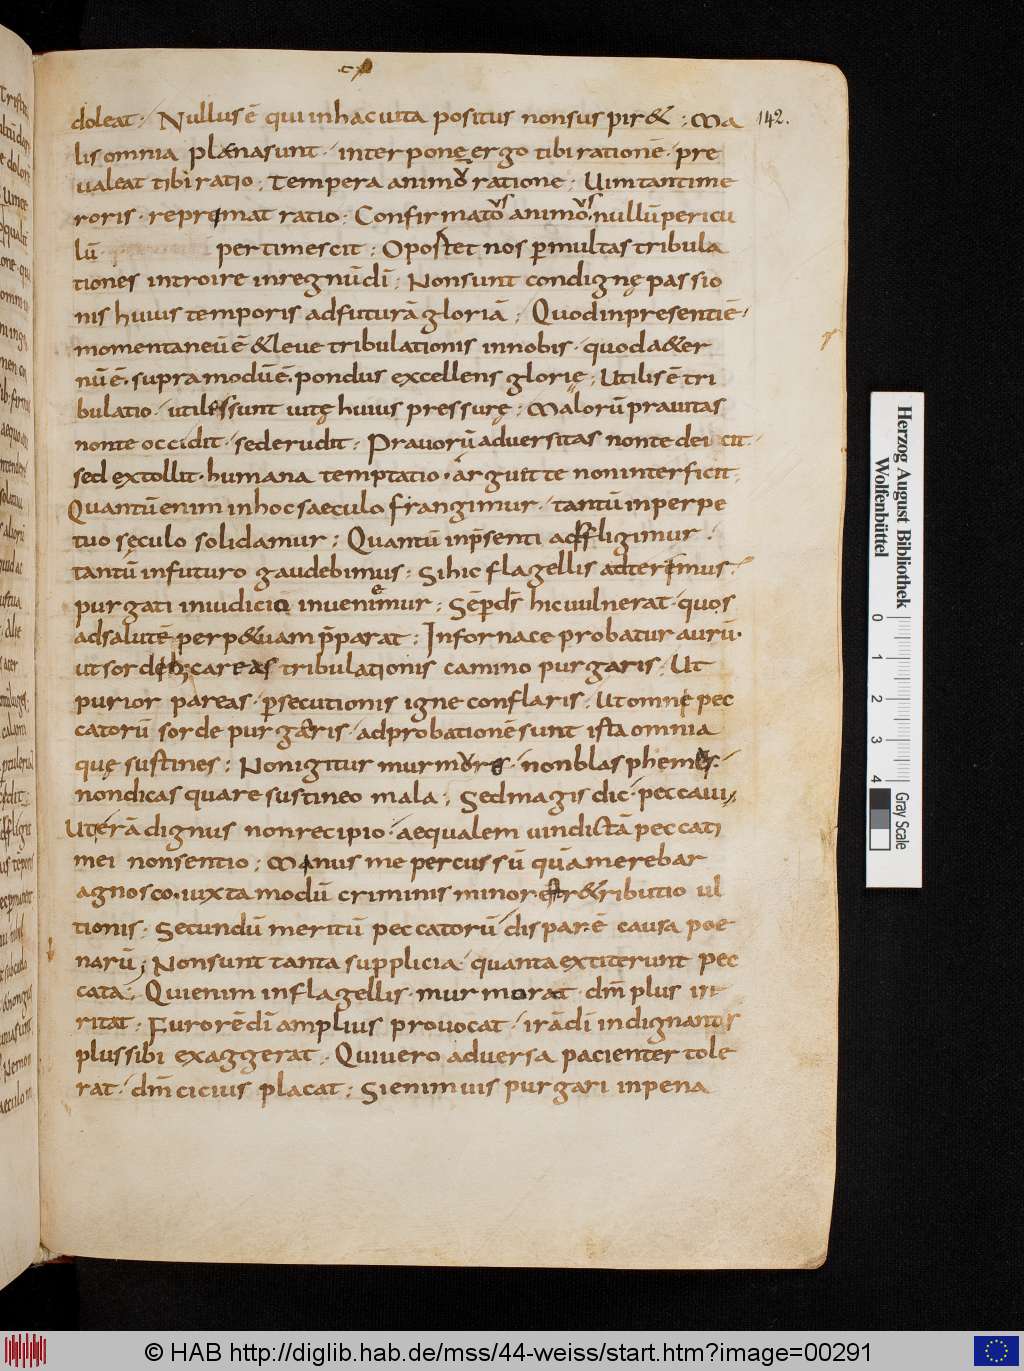 142.
doleat· Nullus ē qui inhacuita positus nonsuspir& ; Ma
lisomnia plænasunt· interponę ergo tibi rationē· pre
ualeat tibi ratio ; Tempera animū ratione ; Uim tantime
roris· repremat ratio ; Confirmatos animos nullū pericu
lū pertimescit ; Oportet nos p̄multas tribula
tiones introire inregnū dī ; Nonsunt condignę passio
nis huius temporis adfuturā gloriā ; Quod inpresentiē·
momentaneū ē & leue tribulationis innobis· quod a&er
nū ē· supramodū ē· pondus excellens glorię ; Utilis ē tri
bulatio· utiles sunt uitę huius pressurę ; Malorū prauitas
nonte occidit· sed erudit ; Prauorū aduersitas nonte deiecit·
sed extollit· humana temptatio· arguit te non interficit ;
Quantū enim inhoc saeculo frangimur· tantū inperpe
tuo sęculo solidamur ; Quantū inp̄senti affligimur·
tantū infuturo gaudebimus ; Sihic flagellis adterimus·
purgati iniudicio inueniemur ; Sēp ds̄ hic uulnerat· quos
adsalutē perp&uam p̄parat ; Infornace probatur aurū·
ut sordeb; careas tribulationis camino purgaris· Ut
purior pareas· p̄secutionis igne conflaris· Ut omne pec
catorū sorde purgaris· adprobationē sunt ista omnia
quę sustines ; Nonigitur murmures· nonblasphemes·
nondicas quare sustineo mala ; Sedmagis dic· peccaui ;
Uterā dignus nonrecipio· aequalem uindictā peccati
mei nonsentio ; Minus me percussū quā merebar
agnosco· iuxta modū criminis minor est r&ributio ul
tionis ; Secundū meritū peccatorū dispar ē causa poe
narū ; Nonsunt tanta supplicia quanta extiterunt pec
cata ; Quienim inflagellis murmorat dm̄ plus in
ritat ; Furorē dī amplius prouocat· irā dī indignantis
plussibi exaggerat ; Quiuero aduersa pacienter tole
rat· dm̄ cicius placat ; Sienim uis purgari inpena
Herzog August Bibliothek
Wolfenbüttel
0 1 2 3 4
Gray Scale
© HAB http://diglib.hab.de/mss/44-weiss/start.htm?image=00291